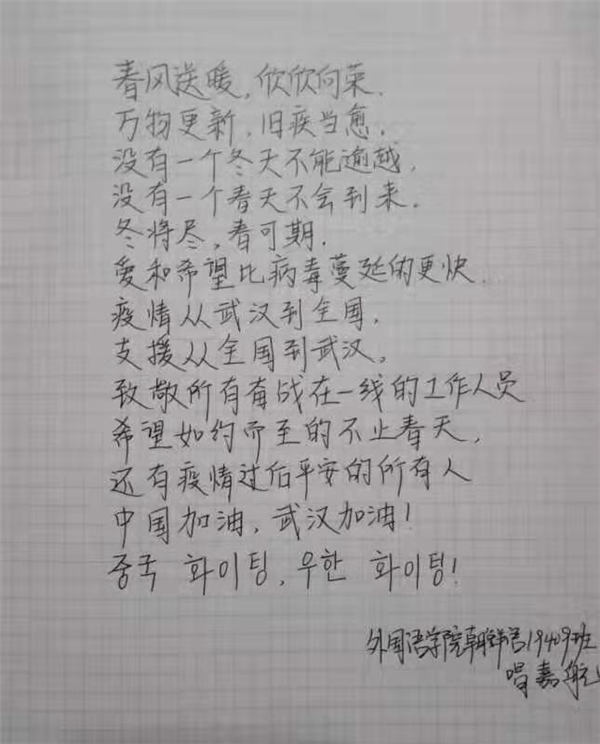 春风送暖，欣欣向荣.
万物更新，旧疾当愈，
没有一个冬天不能逾越，
没有一个春天不会到来.
冬将尽，春可期.
爱和希望比病毒蔓延的更快.
疫情从武汉到全国，
支援从全国到武汉。
致敬所有奋战在一线的工作人员
希望如约而至的不止春天，
还有疫情过后平安的所有人
中国加油，武汉加油！
중국 화이팅, 우한 화이팅!
外国语学院朝鲜语19409班
嘉航